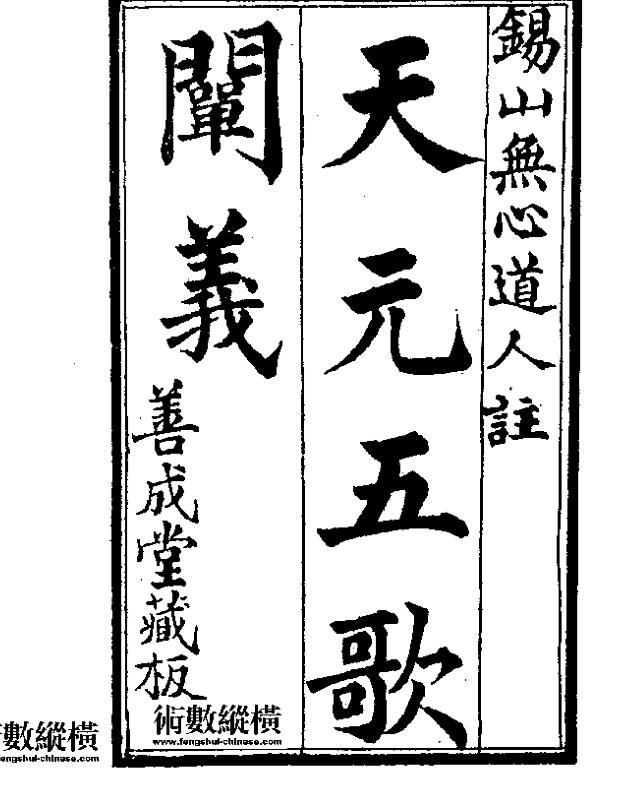 錫山無心道人註
天元五歌
闡義
善成堂藏板
術數縱橫
www.fengshui-chinese.com
數縱橫
fengshui-chinese.com